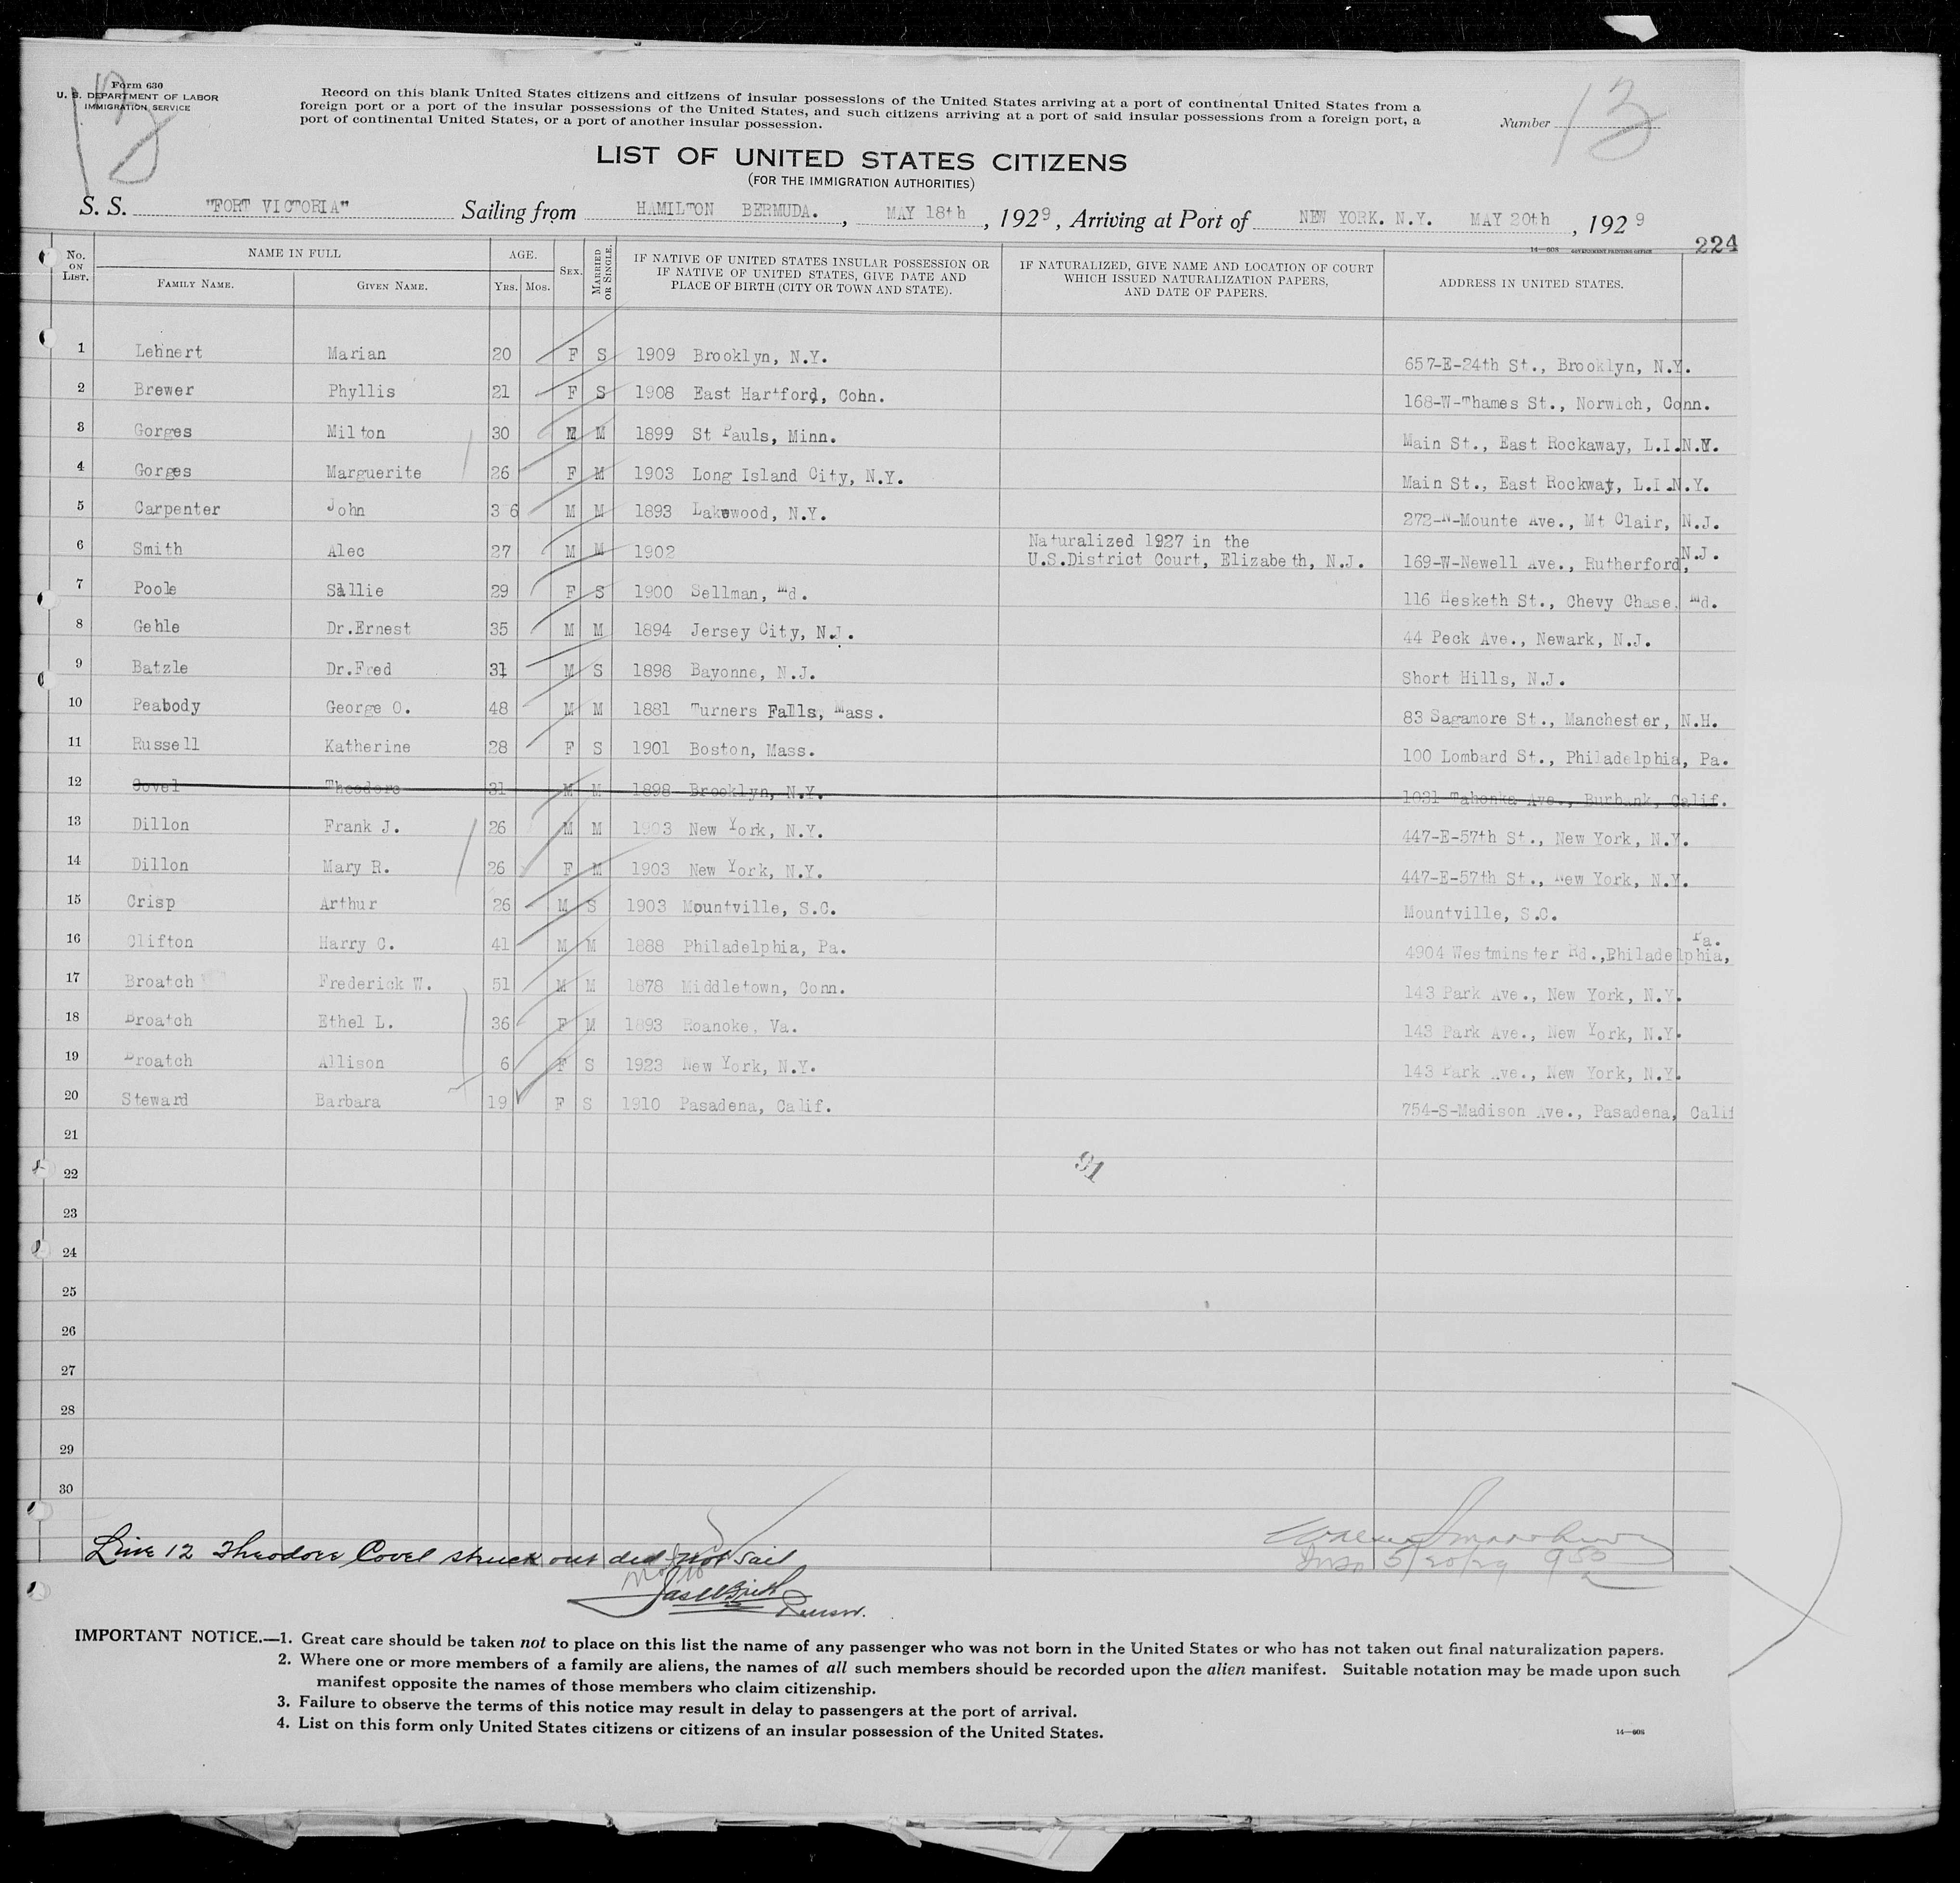 Form 630
U. S. DEPARTMENT OF LABOR
IMMIGRATION SERVICE
13
Record on this blank United States citizens and citizens of insular possessions of the United States arriving at a port of continental United States from a
foreign port or a port of the insular possessions of the United States, and such citizens arriving at a port of said insular possessions from a foreign port, a
port of continental United States, or a port of another insular possession.
Number 13
LIST OF UNITED STATES CITIZENS
(FOR THE IMMIGRATION AUTHORITIES)
S. S. "FORT VICTORIA" Sailing from HAMILTON BERMUDA. , MAY 18th , 1929 , Arriving at Port of NEW YORK. N.Y. MAY 20th , 1929
14—608 GOVERNMENT PRINTING OFFICE 224
No. ON LIST. NAME IN FULL FAMILY NAME. GIVEN NAME. AGE. YRS. MOS. SEX. MARRIED OR SINGLE. IF NATIVE OF UNITED STATES INSULAR POSSESSION OR IF NATIVE OF UNITED STATES, GIVE DATE AND PLACE OF BIRTH (CITY OR TOWN AND STATE). IF NATURALIZED, GIVE NAME AND LOCATION OF COURT WHICH ISSUED NATURALIZATION PAPERS, AND DATE OF PAPERS. ADDRESS IN UNITED STATES.
1 Lehnert Marian 20 F S 1909 Brooklyn, N.Y. 657-E-24th St., Brooklyn, N.Y.
2 Brewer Phyllis 21 F S 1908 East Hartford, Cohn. 168-W-Thames St., Norwich, Conn.
3 Gorges Milton 30 M M 1899 St Pauls, Minn. Main St., East Rockaway, L.I.N.Y.
4 Gorges Marguerite 26 F M 1903 Long Island City, N.Y. Main St., East Rockway, L.I.N.Y.
5 Carpenter John 36 M M 1893 Lakewood, N.Y. 272-N-Mounte Ave., Mt Clair, N.J.
6 Smith Alec 27 M M 1902 Naturalized 1927 in the U.S.District Court, Elizabeth, N.J. 169-W-Newell Ave., Rutherford, N.J.
7 Poole Sallie 29 F S 1900 Sellman, Md. 116 Hesketh St., Chevy Chase, Md.
8 Gehle Dr.Ernest 35 M M 1894 Jersey City, N.J. 44 Peck Ave., Newark, N.J.
9 Batzle Dr.Fred 31 M S 1898 Bayonne, N.J. Short Hills, N.J.
10 Peabody George O. 48 M M 1881 Turners Falls, Mass. 83 Sagamore St., Manchester, N.H.
11 Russell Katherine 28 F S 1901 Boston, Mass. 100 Lombard St., Philadelphia, Pa.
12 Covel Theodore 31 M M 1898 Brooklyn, N.Y. 1031 Tahonka Ave., Burbank, Calif.
13 Dillon Frank J. 26 M M 1903 New York, N.Y. 447-E-57th St., New York, N.Y.
14 Dillon Mary R. 26 F M 1903 New York, N.Y. 447-E-57th St., New York, N.Y.
15 Crisp Arthur 26 M S 1903 Mountville, S.C. Mountville, S.C.
16 Clifton Harry C. 41 M M 1888 Philadelphia, Pa. 4904 Westminster Rd.,Philadelphia, Pa.
17 Broatch Frederick W. 51 M M 1878 Middletown, Conn. 143 Park Ave., New York, N.Y.
18 Broatch Ethel L. 36 F M 1893 Roanoke, Va. 143 Park Ave., New York, N.Y.
19 Broatch Allison 6 F S 1923 New York, N.Y. 143 Park Ave., New York, N.Y.
20 Steward Barbara 19 F S 1910 Pasadena, Calif. 754-S-Madison Ave., Pasadena, Calif
21
91
22
23
24
25
26
27
28
29
30
Line 12 Theodore Covel struck out did not sail
Insp 5/20/29
Purser.
IMPORTANT NOTICE.—1. Great care should be taken not to place on this list the name of any passenger who was not born in the United States or who has not taken out final naturalization papers.
2. Where one or more members of a family are aliens, the names of all such members should be recorded upon the alien manifest. Suitable notation may be made upon such
manifest opposite the names of those members who claim citizenship.
3. Failure to observe the terms of this notice may result in delay to passengers at the port of arrival.
4. List on this form only United States citizens or citizens of an insular possession of the United States.
14—608